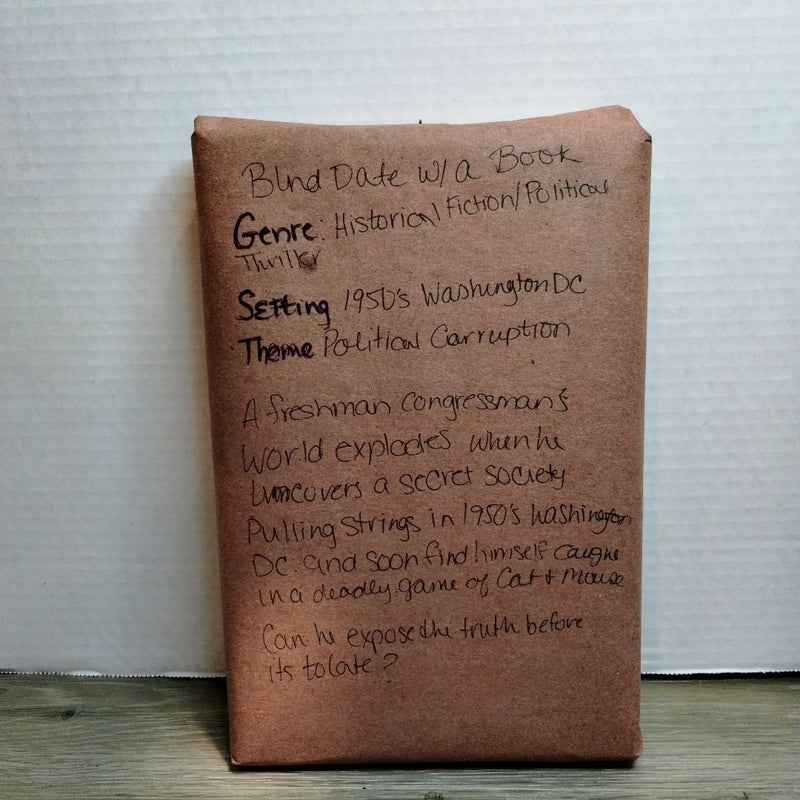 Blnd Date w/ a Book
Genre: Historical Fiction/Political
Thriller
Setting 1950's Washington DC
Theme Political Carruption
A freshman congressman's
World explodes when he
uncovers a secret society
Pulling strings in 1950's Washington
DC. and soon find himself caught
in a deadly game of Cat & Mouse
Can he expose the truth before
its to late?